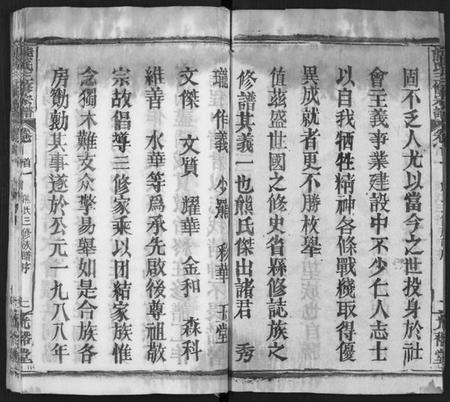 固不乏人尤以當今之世投身於社
會主義事業建設中不少仁人志士
以自我犧牲精神各條戰綫取得優
異成就者更不勝枚舉
值茲盛世國之修史省縣修誌族之
修譜其義一也熊氏傑出諸君 秀
瓏 作義 少羆 彩華 玉堂
文傑 文質 耀華 金和 森科
維善 水華等為承先啟後尊祖敬
宗故倡導三修家乘以団結家族惟
念獨木難支眾擎易舉如是合族各
房勷勷其事遂於公元一九八八年
熊氏三修家譜 卷首